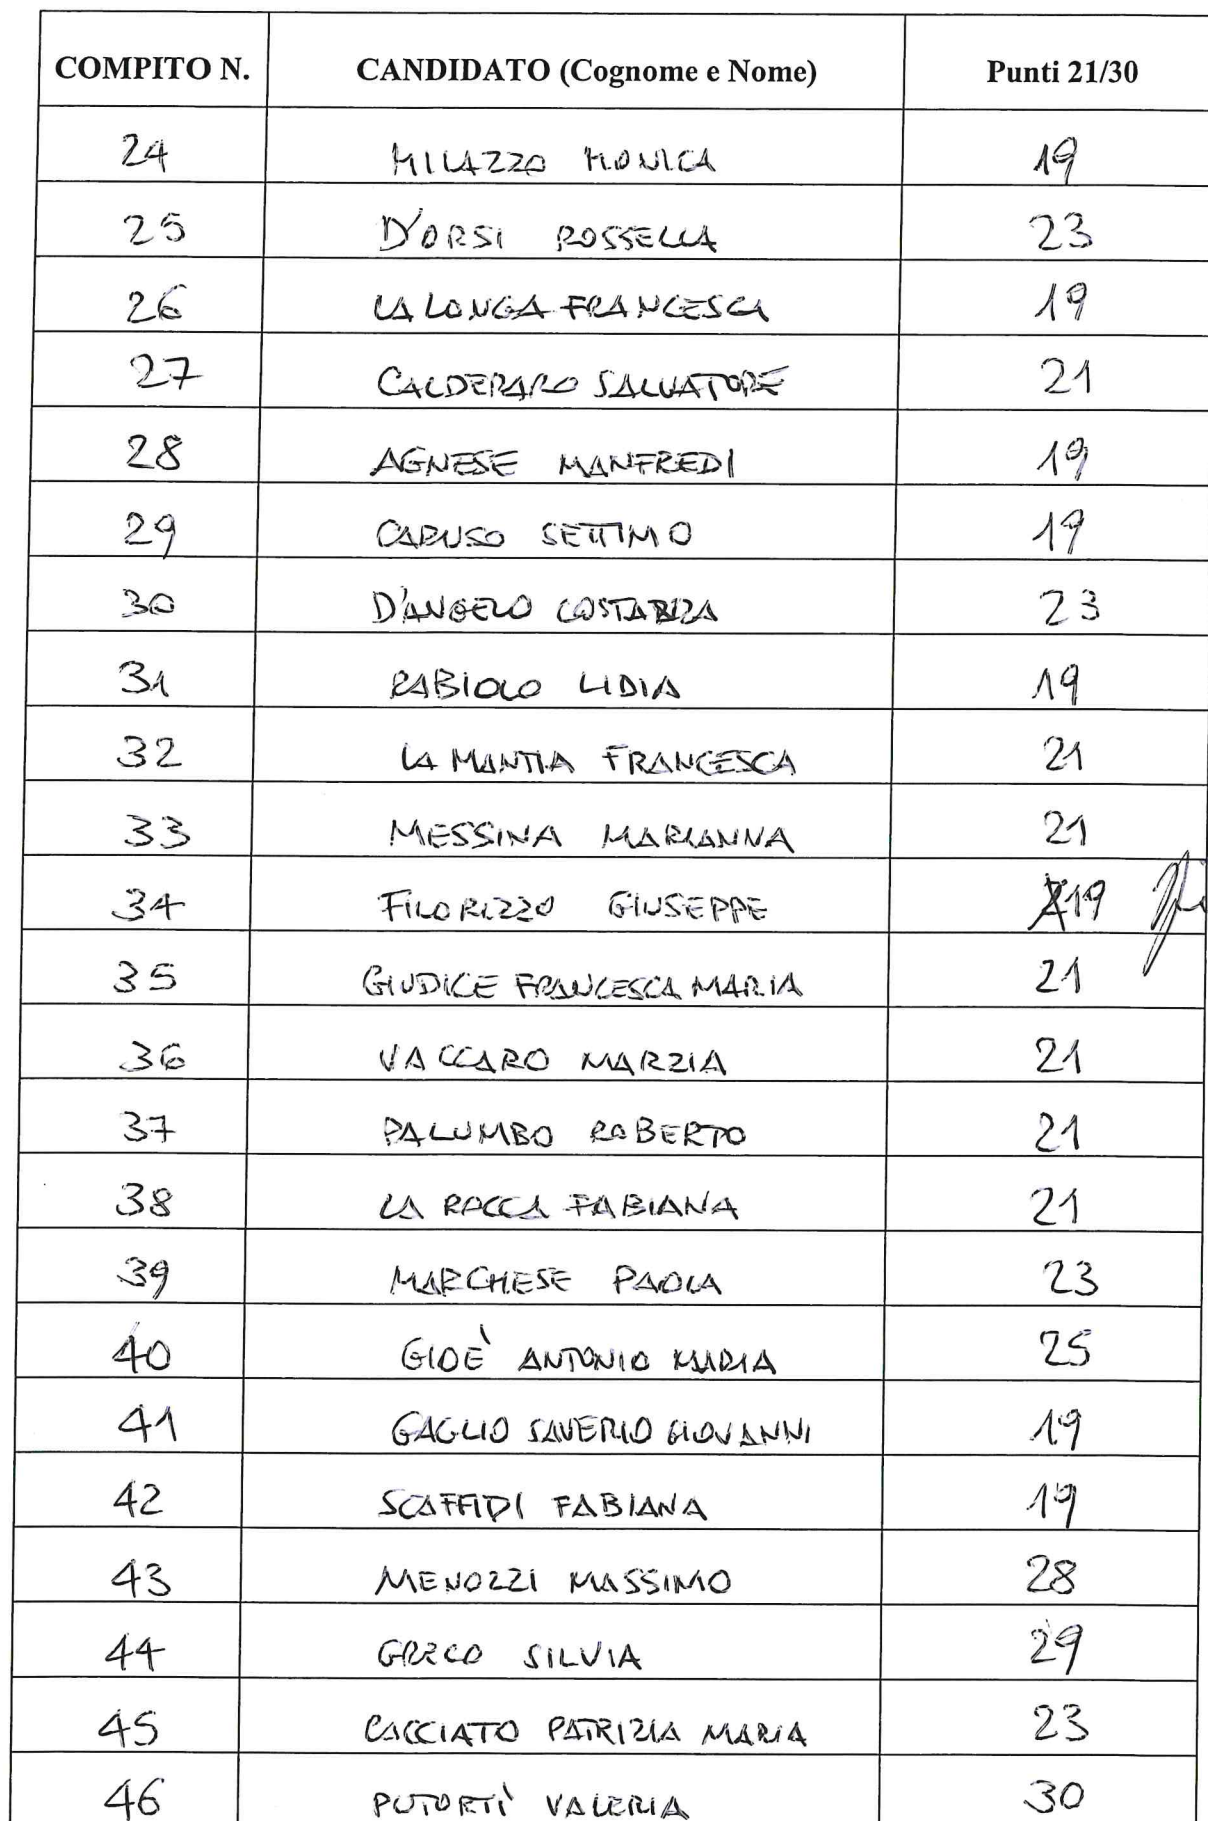 COMPITO N. CANDIDATO (Cognome e Nome) Punti 21/30
24 MILAZZO MONICA 19
25 D'ORSI ROSSELLA 23
26 LA LONGA FRANCESCA 19
27 CALDERARO SALVATORE 21
28 AGNESE MANFREDI 19
29 CARUSO SETTIMO 19
30 D'ANGELO 23
31 RABIOLO LIDIA 19
32 LA MANTIA FRANCESCA 21
33 MESSINA MARIANNA 21
34 FILORIZZO GIUSEPPE 19
35 GIUDICE FRANCESCA MARIA 21
36 VACCARO MARZIA 21
37 PALUMBO ROBERTO 21
38 LA ROCCA FABIANA 21
39 MARCHESE PAOLA 23
40 GIOE' ANTONIO MARIA 25
41 GAGLIO SAVERIO GIOVANNI 19
42 SCAFFIDI FABIANA 19
43 MENOZZI MASSIMO 28
44 GRECO SILVIA 29
45 CACCIATO PATRIZIA MARIA 23
46 PUTORTI' VALERIA 30